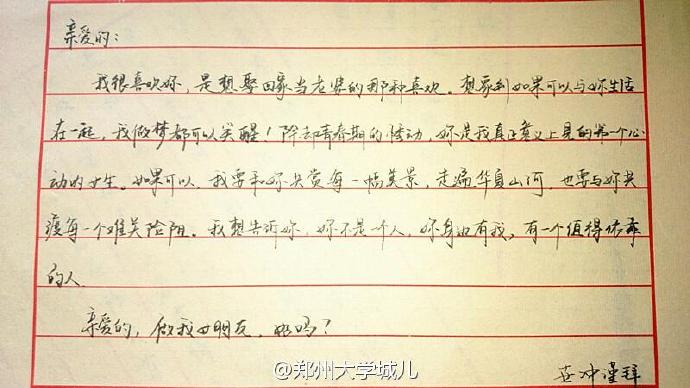 亲爱的：
我很喜欢妳，是想娶回家当老婆的那种喜欢。想象到如果可以与妳生活
在一起，我做梦都可以笑醒！除却青春期的悸动，妳是我真正意义上见的第一个心
动的女生。如果可以，我要和妳共赏每一幅美景，走遍华夏山河，也要与妳共
渡每一个难关险阻。我想告诉妳，妳不是一个人，妳身边有我，有一个值得依靠
的人
亲爱的，做我女朋友，好吗？
冲谨拜
@郑州大学城儿